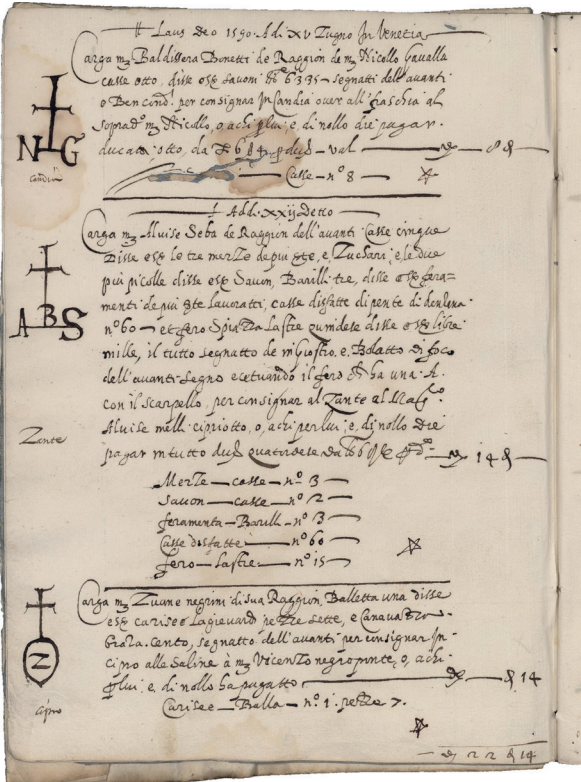 Laus Deo 1590. Adi XV Zugno In Venetia
Carga mz Baldissera Bonetti de Raggion de mz Nicollo Gavalla
casse otto, disse esser savoni 6335 segnatti dell'avanti
e Ben cond. per consignar In Candia over all' fraschia al
soprad.o mz Nicollo, o, a chi p lui: e, di nollo die pagar
ducati otto, da val 8
Casse n.o 8
N G
Candia
Addi XXij Detto
Carga mz Aluise Seba de Raggion dell'avanti Casse cinque
Disse esser le tre merze de piu sorte, e, Zuchari, e le due
piu picolle disse esser Savon, Barilli tre, disse esser fera=
menti de piu sorte lavoratti, casse disfatte dipente di
n.o 60 et fero Spiazza Lastre quindese disse esser libre
mille, il tutto segnatto de Ingiostro, e, Bolatto di foco
dell'avanti segno ecetuando il fero ch ha una A.
con il scarpello, per consignar al Zante al Mag.co
Aluise melli cipriotto, o, a chi per lui, e, di nollo die
pagar in tutto duc quatordese da 14
A B S
Zante
Merze casse n.o 3
Savon casse n.o 2
feramenta Barilli n.o 3
Casse disfatte n.o 60
fero Lastre n.o 15
Carga mz Zuane negrini di sua Raggion, Balletta una disse
esser carisee pezze sette, e Canavazzo
braza cento, segnatto dell'avanti per consignar In
cipro alle Saline à mz Vicenzo negroponte, o, a chi
p lui e, di nollo ha pagatto 14
Carisee Balla n.o 1. pezze 7.
Z
Cipro
22 14